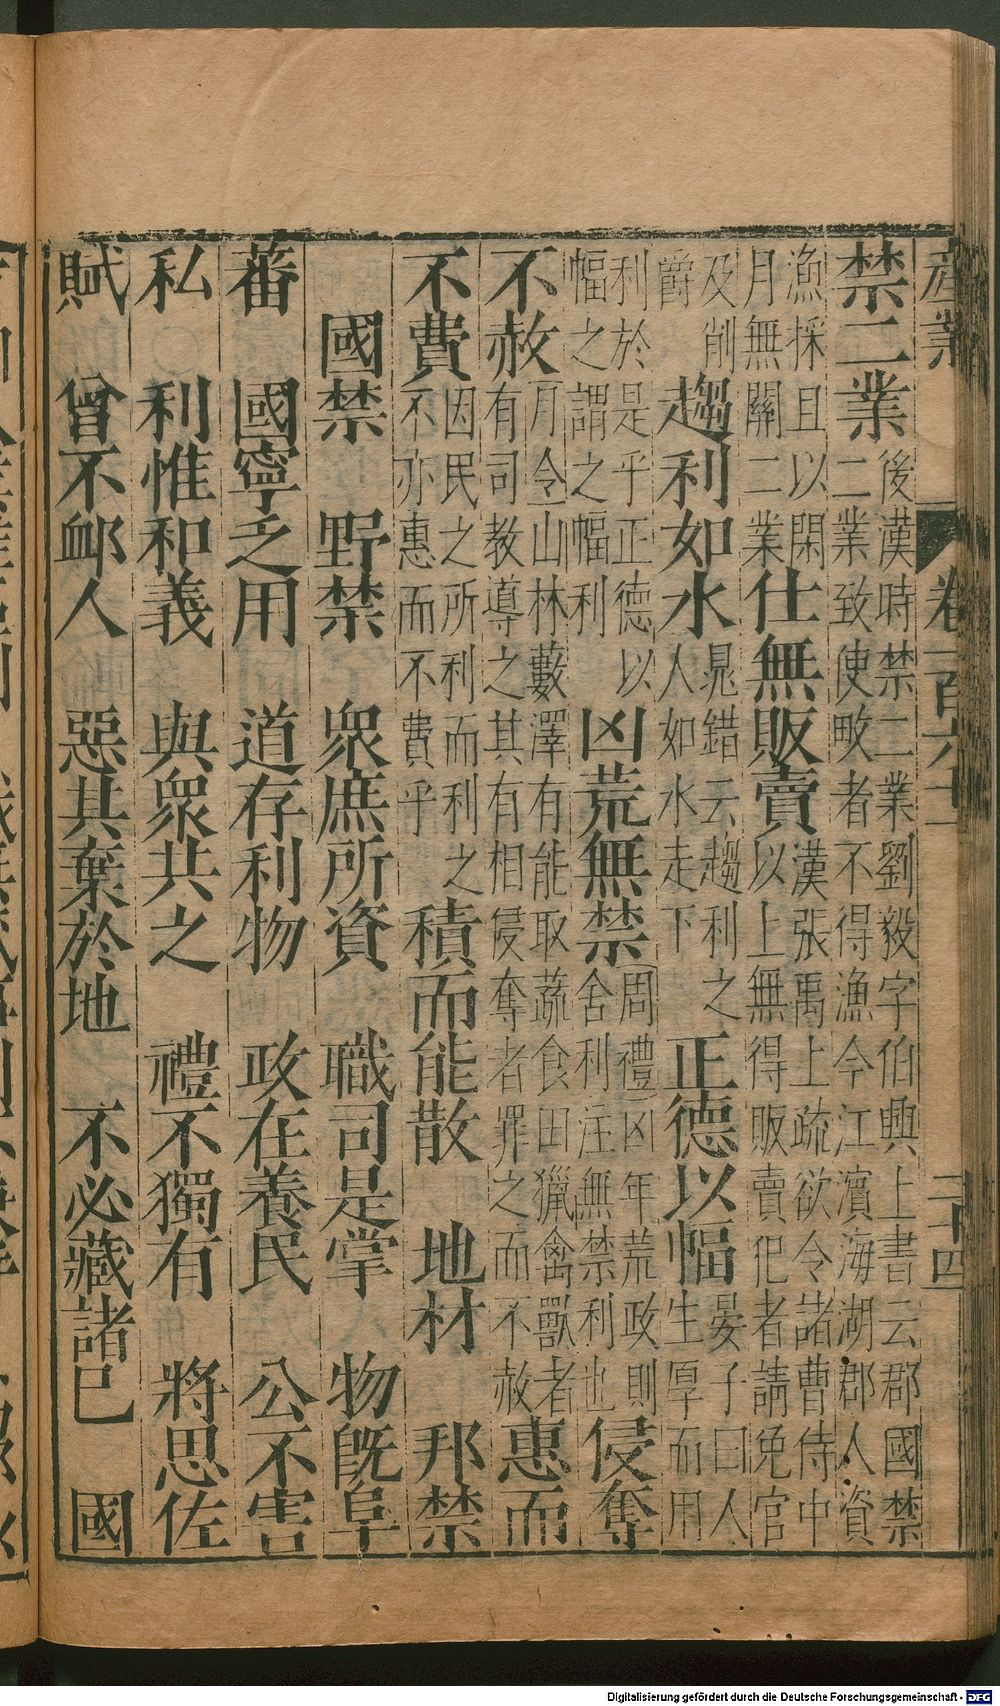 產業
卷一百六十一
二十四
禁二業後漢時禁二業劉毅字伯興上書云郡國禁
二業致使畋者不得漁今江濱海湖郡人資
漁採且以閑漢張禹上疏欲令諸曹侍中
月無關二業仕無販賣以上無得販賣犯者請免官
及削
爵趨利如水晁錯云趨利之
人如水走下正德以幅晏子曰人
生厚而用
利於是乎正德以
幅之謂之幅利凶荒無禁周禮凶年荒政則
舍利注無禁利也侵奪
不赦月令山林藪澤有能取蔬食田獵禽獸者
有司教導之其有相侵奪者罪之而不赦惠而
不費因民之所利而利之
不亦惠而不費乎積而能散 地材 邦禁
國禁 野禁 衆庶所資 職司是掌 物旣阜
蕃 國寧乏用 道存利物 政在養民 公不害
私 利惟和義 與衆共之 禮不獨有 將思佐
賦 曾不䘏人 惡其棄於地 不必藏諸已 國
Digitalisierung gefördert durch die Deutsche Forschungsgemeinschaft - DFG